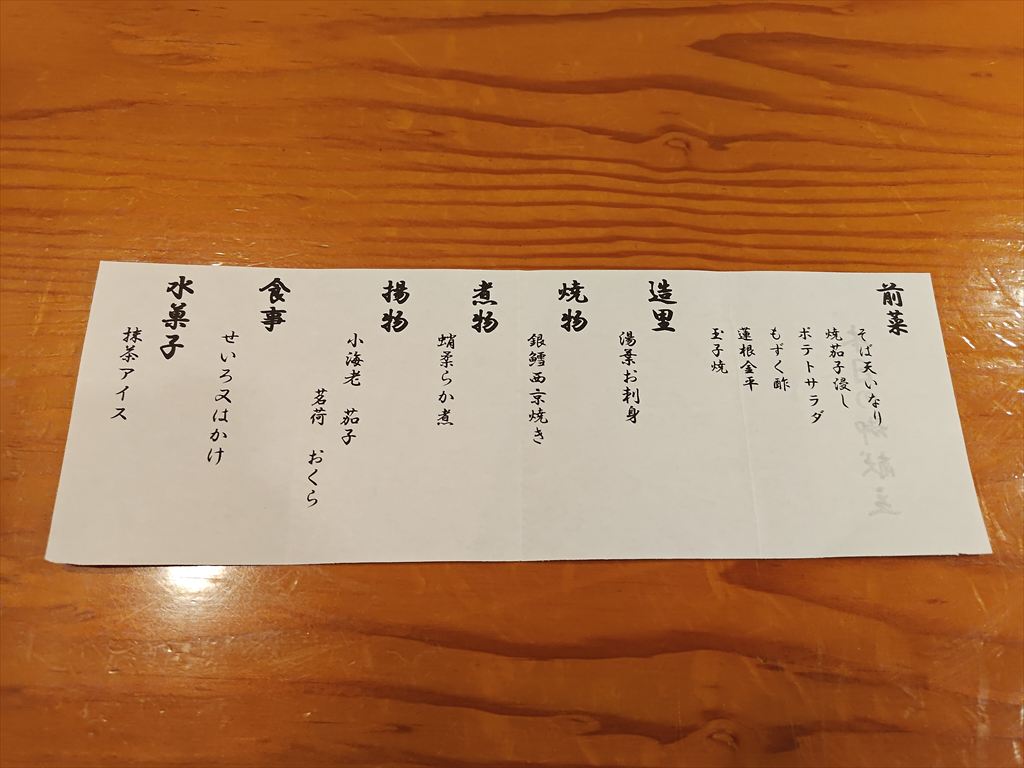 前菜
そば天いなり
焼茄子浸し
ポテトサラダ
もずく酢
蓮根金平
玉子焼
造里
湯葉お刺身
焼物
銀鱈西京焼き
煮物
蛸柔らか煮
揚物
小海老 茄子
茗荷 おくら
食事
せいろ又はかけ
水菓子
抹茶アイス